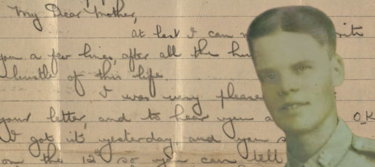 My Dear Mother,
at last I can
you a few lines, after all the
bustle of this life
I was very please
your letter, and to hear you a O.K
I got it yesterday, and you
on the 12th so you can tell